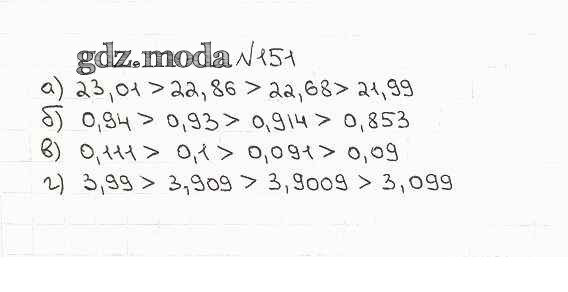 gdz.moda №151
а) 23,01 > 22,86 > 22,68 > 21,99
б) 0,94 > 0,93 > 0,914 > 0,853
в) 0,111 > 0,1 > 0,091 > 0,09
г) 3,99 > 3,909 > 3,9009 > 3,099